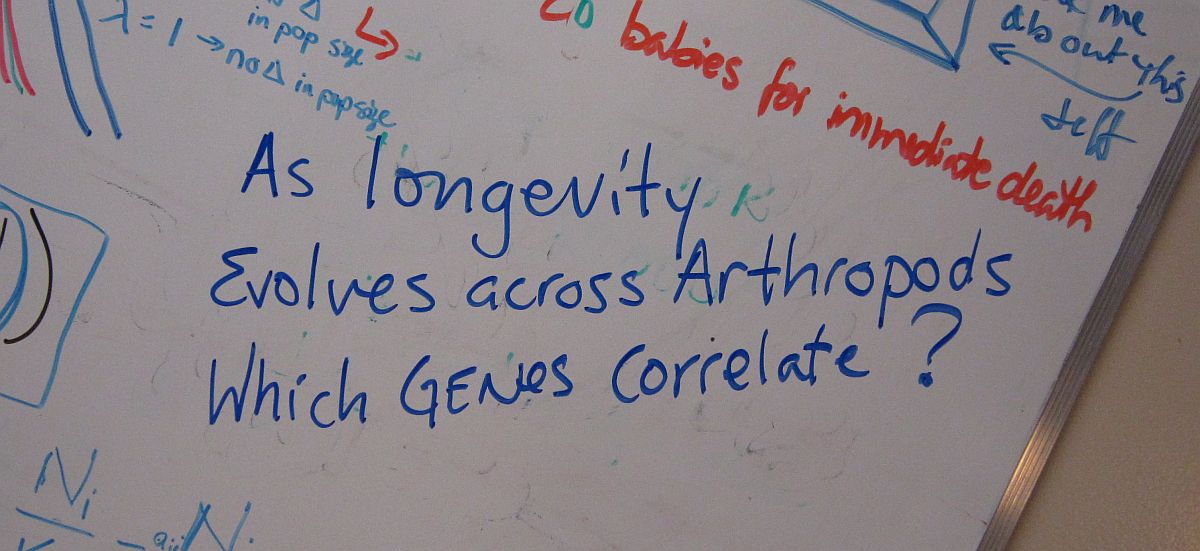 in pop size
λ = 1 → no Δ in pop size
babies for immediate death
me
about this
As longevity
Evolves across Arthropods
Which GENES Correlate ?
Ni
N